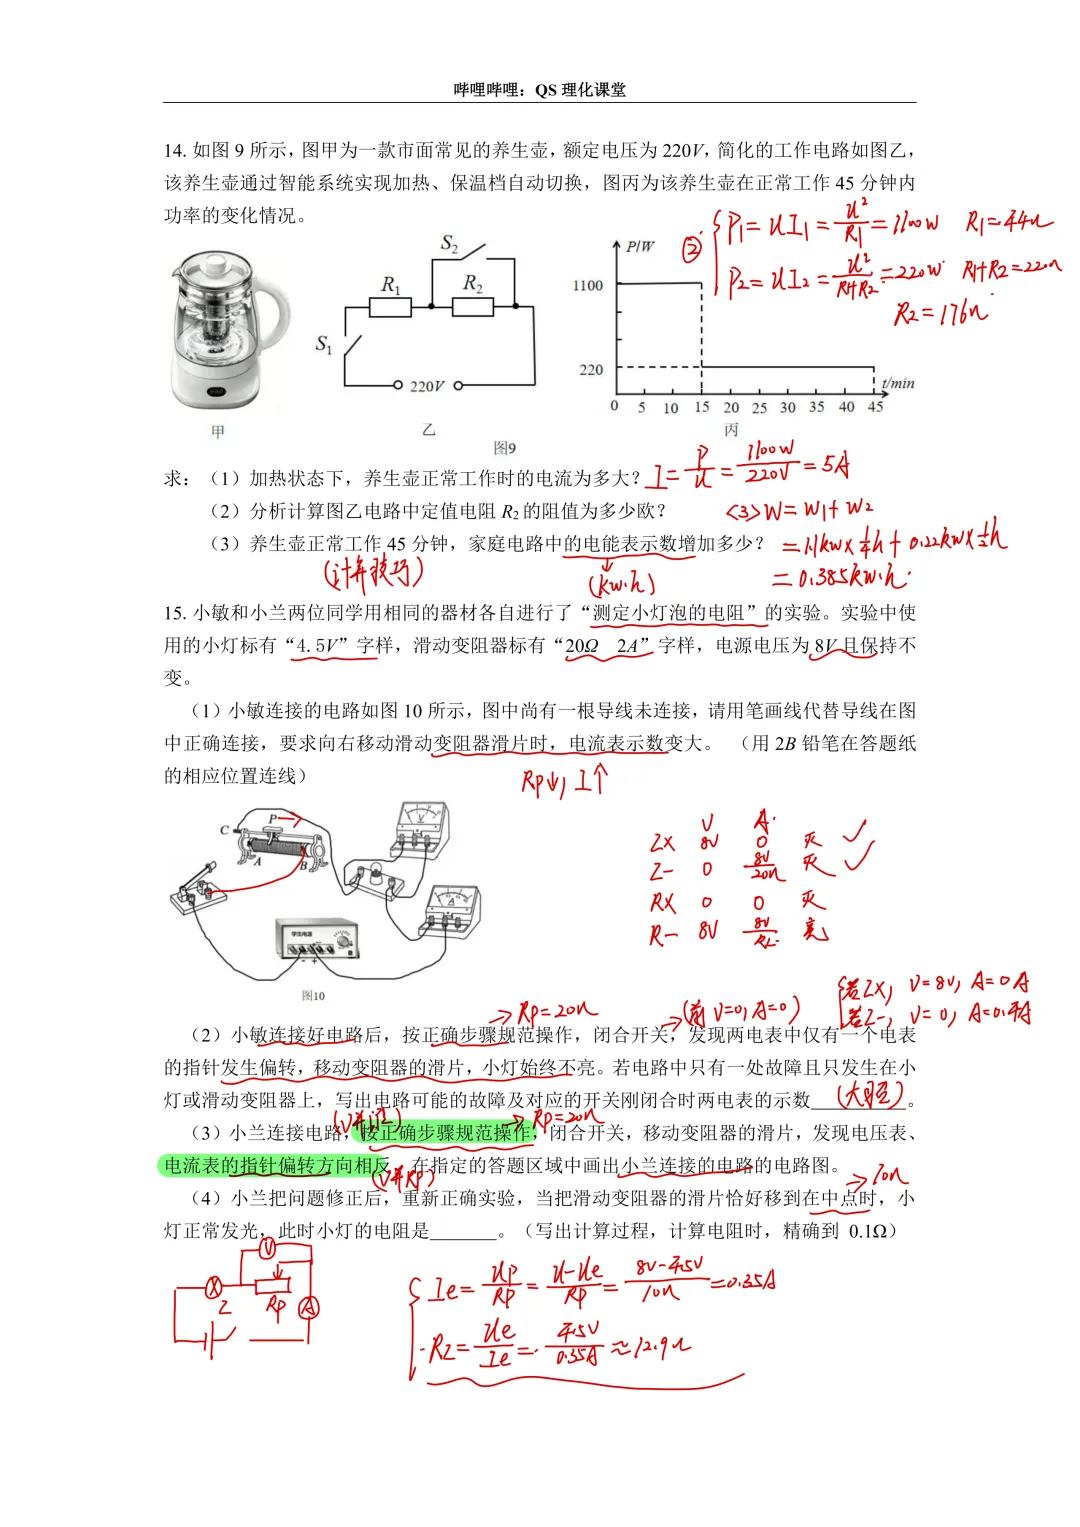 哔哩哔哩：QS 理化课堂
14. 如图 9 所示，图甲为一款市面常见的养生壶，额定电压为 220V，简化的工作电路如图乙，
该养生壶通过智能系统实现加热、保温档自动切换，图丙为该养生壶在正常工作 45 分钟内
功率的变化情况。
② P₁= UI₁ = U²/R₁ = 1100W R₁=44Ω
P₂= UI₂ = U²/R₁+R₂ = 220W R₁+R₂=220Ω
R₂=176Ω
S₂
R₁ R₂
S₁
220V
P/W
1100
220
t/min
0 5 10 15 20 25 30 35 40 45
甲 乙 丙
图9
求：（1）加热状态下，养生壶正常工作时的电流为多大？ I = P/U = 1100W/220V = 5A
（2）分析计算图乙电路中定值电阻 R₂ 的阻值为多少欧？ <3> W = W₁+W₂
（3）养生壶正常工作 45 分钟，家庭电路中的电能表示数增加多少？ = 1.1kw×1/4h + 0.22kw×1/2h
（计算技巧） （kw·h） = 0.385kw·h
15. 小敏和小兰两位同学用相同的器材各自进行了“测定小灯泡的电阻”的实验。实验中使
用的小灯标有“4.5V”字样，滑动变阻器标有“20Ω 2A”字样，电源电压为 8V 且保持不
变。
（1）小敏连接的电路如图 10 所示，图中尚有一根导线未连接，请用笔画线代替导线在图
中正确连接，要求向右移动滑动变阻器滑片时，电流表示数变大。 （用 2B 铅笔在答题纸
的相应位置连线）
Rp↓, I↑
C P A B
V
A
学生电源
- +
图10
V A
ZX 8V 0 灭 ✓
Z- 0 8V/20Ω 灭 ✓
RX 0 0 灭
R- 8V 8V/RL 亮
若ZX, V=8V, A=0A
若Z-, V=0, A=0.4A
→Rp=20Ω →(前V=0, A=0)
（2）小敏连接好电路后，按正确步骤规范操作，闭合开关，发现两电表中仅有一个电表
的指针发生偏转，移动变阻器的滑片，小灯始终不亮。若电路中只有一处故障且只发生在小
灯或滑动变阻器上，写出电路可能的故障及对应的开关刚闭合时两电表的示数________。
（大胆）
→Rp=20Ω
（3）小兰连接电路，按正确步骤规范操作，闭合开关，移动变阻器的滑片，发现电压表、
电流表的指针偏转方向相反，在指定的答题区域中画出小兰连接的电路的电路图。
(V并Rp) →10Ω
（4）小兰把问题修正后，重新正确实验，当把滑动变阻器的滑片恰好移到在中点时，小
灯正常发光，此时小灯的电阻是______。（写出计算过程，计算电阻时，精确到 0.1Ω）
V
Z Rp A
Ie = Up/Rp = U-Ue/Rp = 8V-4.5V/10Ω = 0.35A
RZ = Ue/Ie = 4.5V/0.35A ≈ 12.9Ω